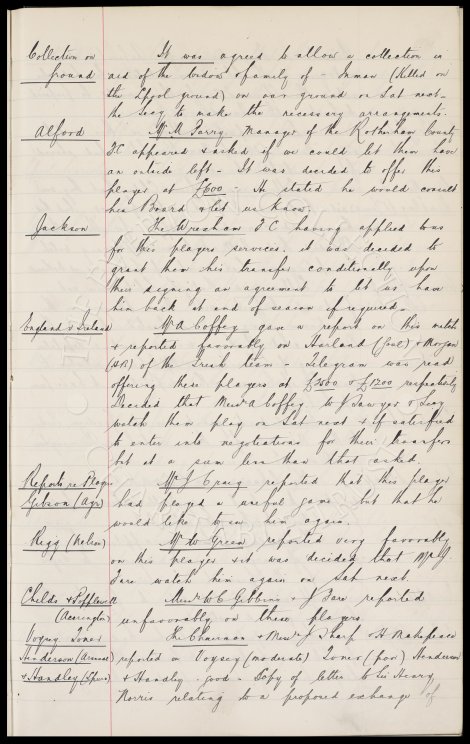 Collection on ground
It was agreed to allow a collection in
aid of the widow & family of - Inman (Killed on
the L'pool ground) on our ground on Sat next -
the Secy to make the necessary arrangements.
Alford
Mr M Parry Manager of the Rotherham County
FC appeared & asked if we could let them have
an outside left - It was decided to offer this
player at £600 - He stated he would consult
his Board & let us know.
Jackson
The Wrexham FC having applied to us
for this players services, it was decided to
grant them his transfer conditionally upon
their signing an agreement to let us have
him back at end of season if required -
England v Ireland
Mr A Coffey gave a report on this match
& reported favorably on Harland (Goal) & Morgan
(HB) of the Irish team - Telegram was read
offering these players at £2500 & £1200 respectively
Decided that Messrs A Coffey W J Sawyer & Secy
watch them play on Sat next & if satisfied
to enter into negotiations for their transfers
but at a sum less than that asked.
Reports re Players
Gibson (Ayr)
Mr J Craig reported that this player
had played a useful game but that he
would like to see him again.
Regg (Nelson)
Mr W Green reported very favorably
on this player & it was decided that Mr J
Fare watch him again on Sat next
Childs & Popplewell (Accrington)
Messrs W C Gibbins & J Fare reported
unfavorably on these players
Voysey Jones
Henderson (Arsenal)
& Handley (Spurs)
The Chairman & Messrs J Sharp & H Makepeace
reported on Voysey (moderate) Jones (poor) Henderson
& Handley - good - Copy of letter to Sir Henry
Norris relating to a proposed exchange of